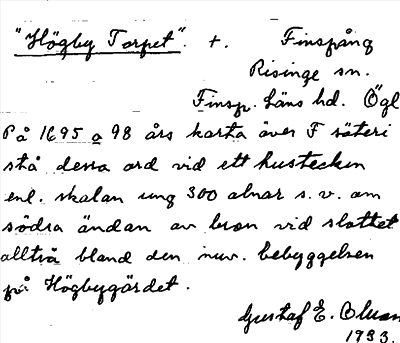 "Högby Torpet". t. Finspång
Risinge sn.
Finsp. läns hd. Ögl
På 1695 a 98 års karta över F säteri
stå dessa ord vid ett hustecken
enl. skalan ung 300 alnar s.v. om
södra ändan av bron vid slottet
alltså bland den nuv. bebyggelsen
på Högbygärdet.
Gustaf E. Bluan
1933.